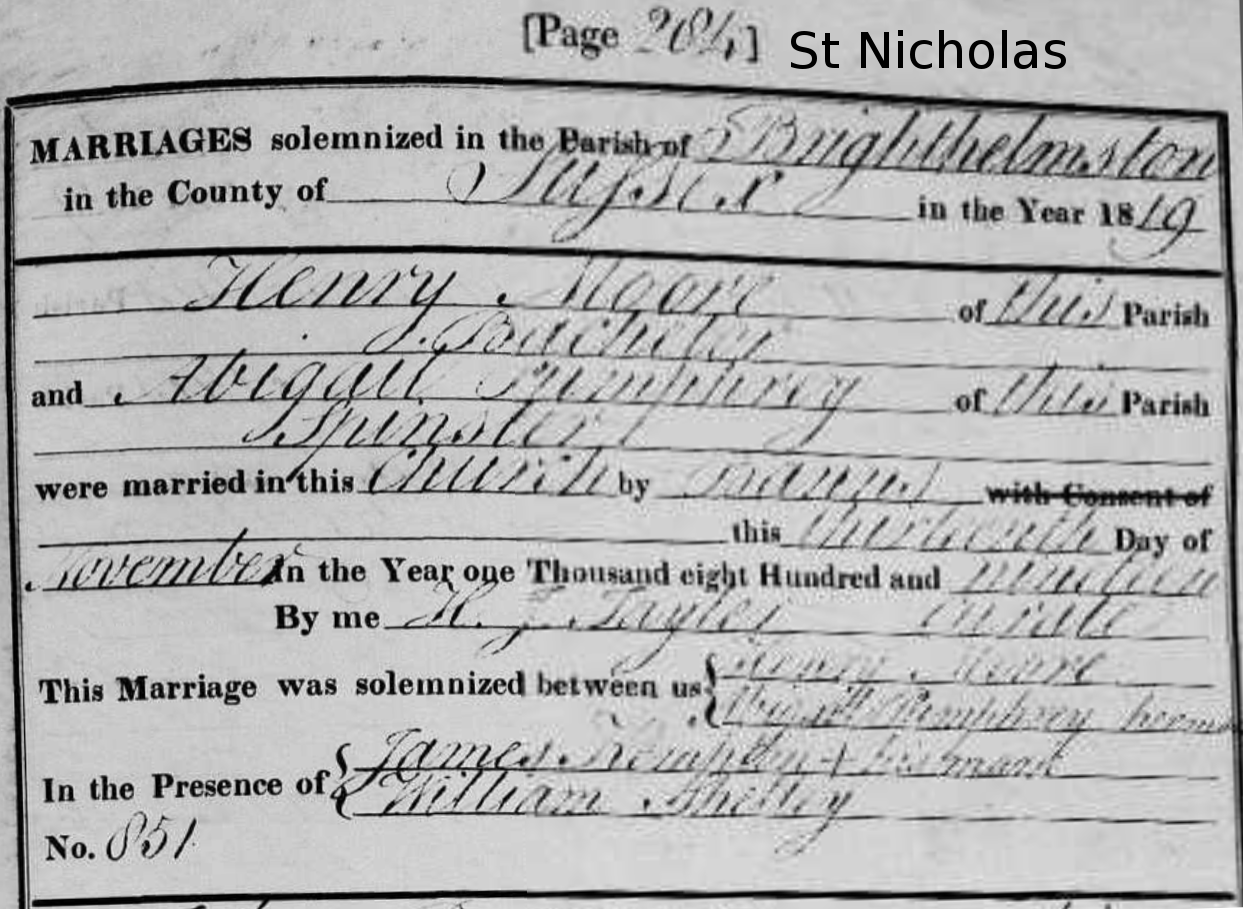 [Page 284] St Nicholas
MARRIAGES solemnized in the Parish of Brighthelmston
in the County of Sussex in the Year 1819
Henry Moore of this Parish
Bachelor
and Abigail Pumphrey of this Parish
Spinster
were married in this Church by Banns with Consent of
this thirteenth Day of
November in the Year one Thousand eight Hundred and nineteen
By me H. J. Taylor Curate
This Marriage was solemnized between us Henry Moore
Abigail Pumphrey her mark
In the Presence of James + his mark
William Shelley
No. 851